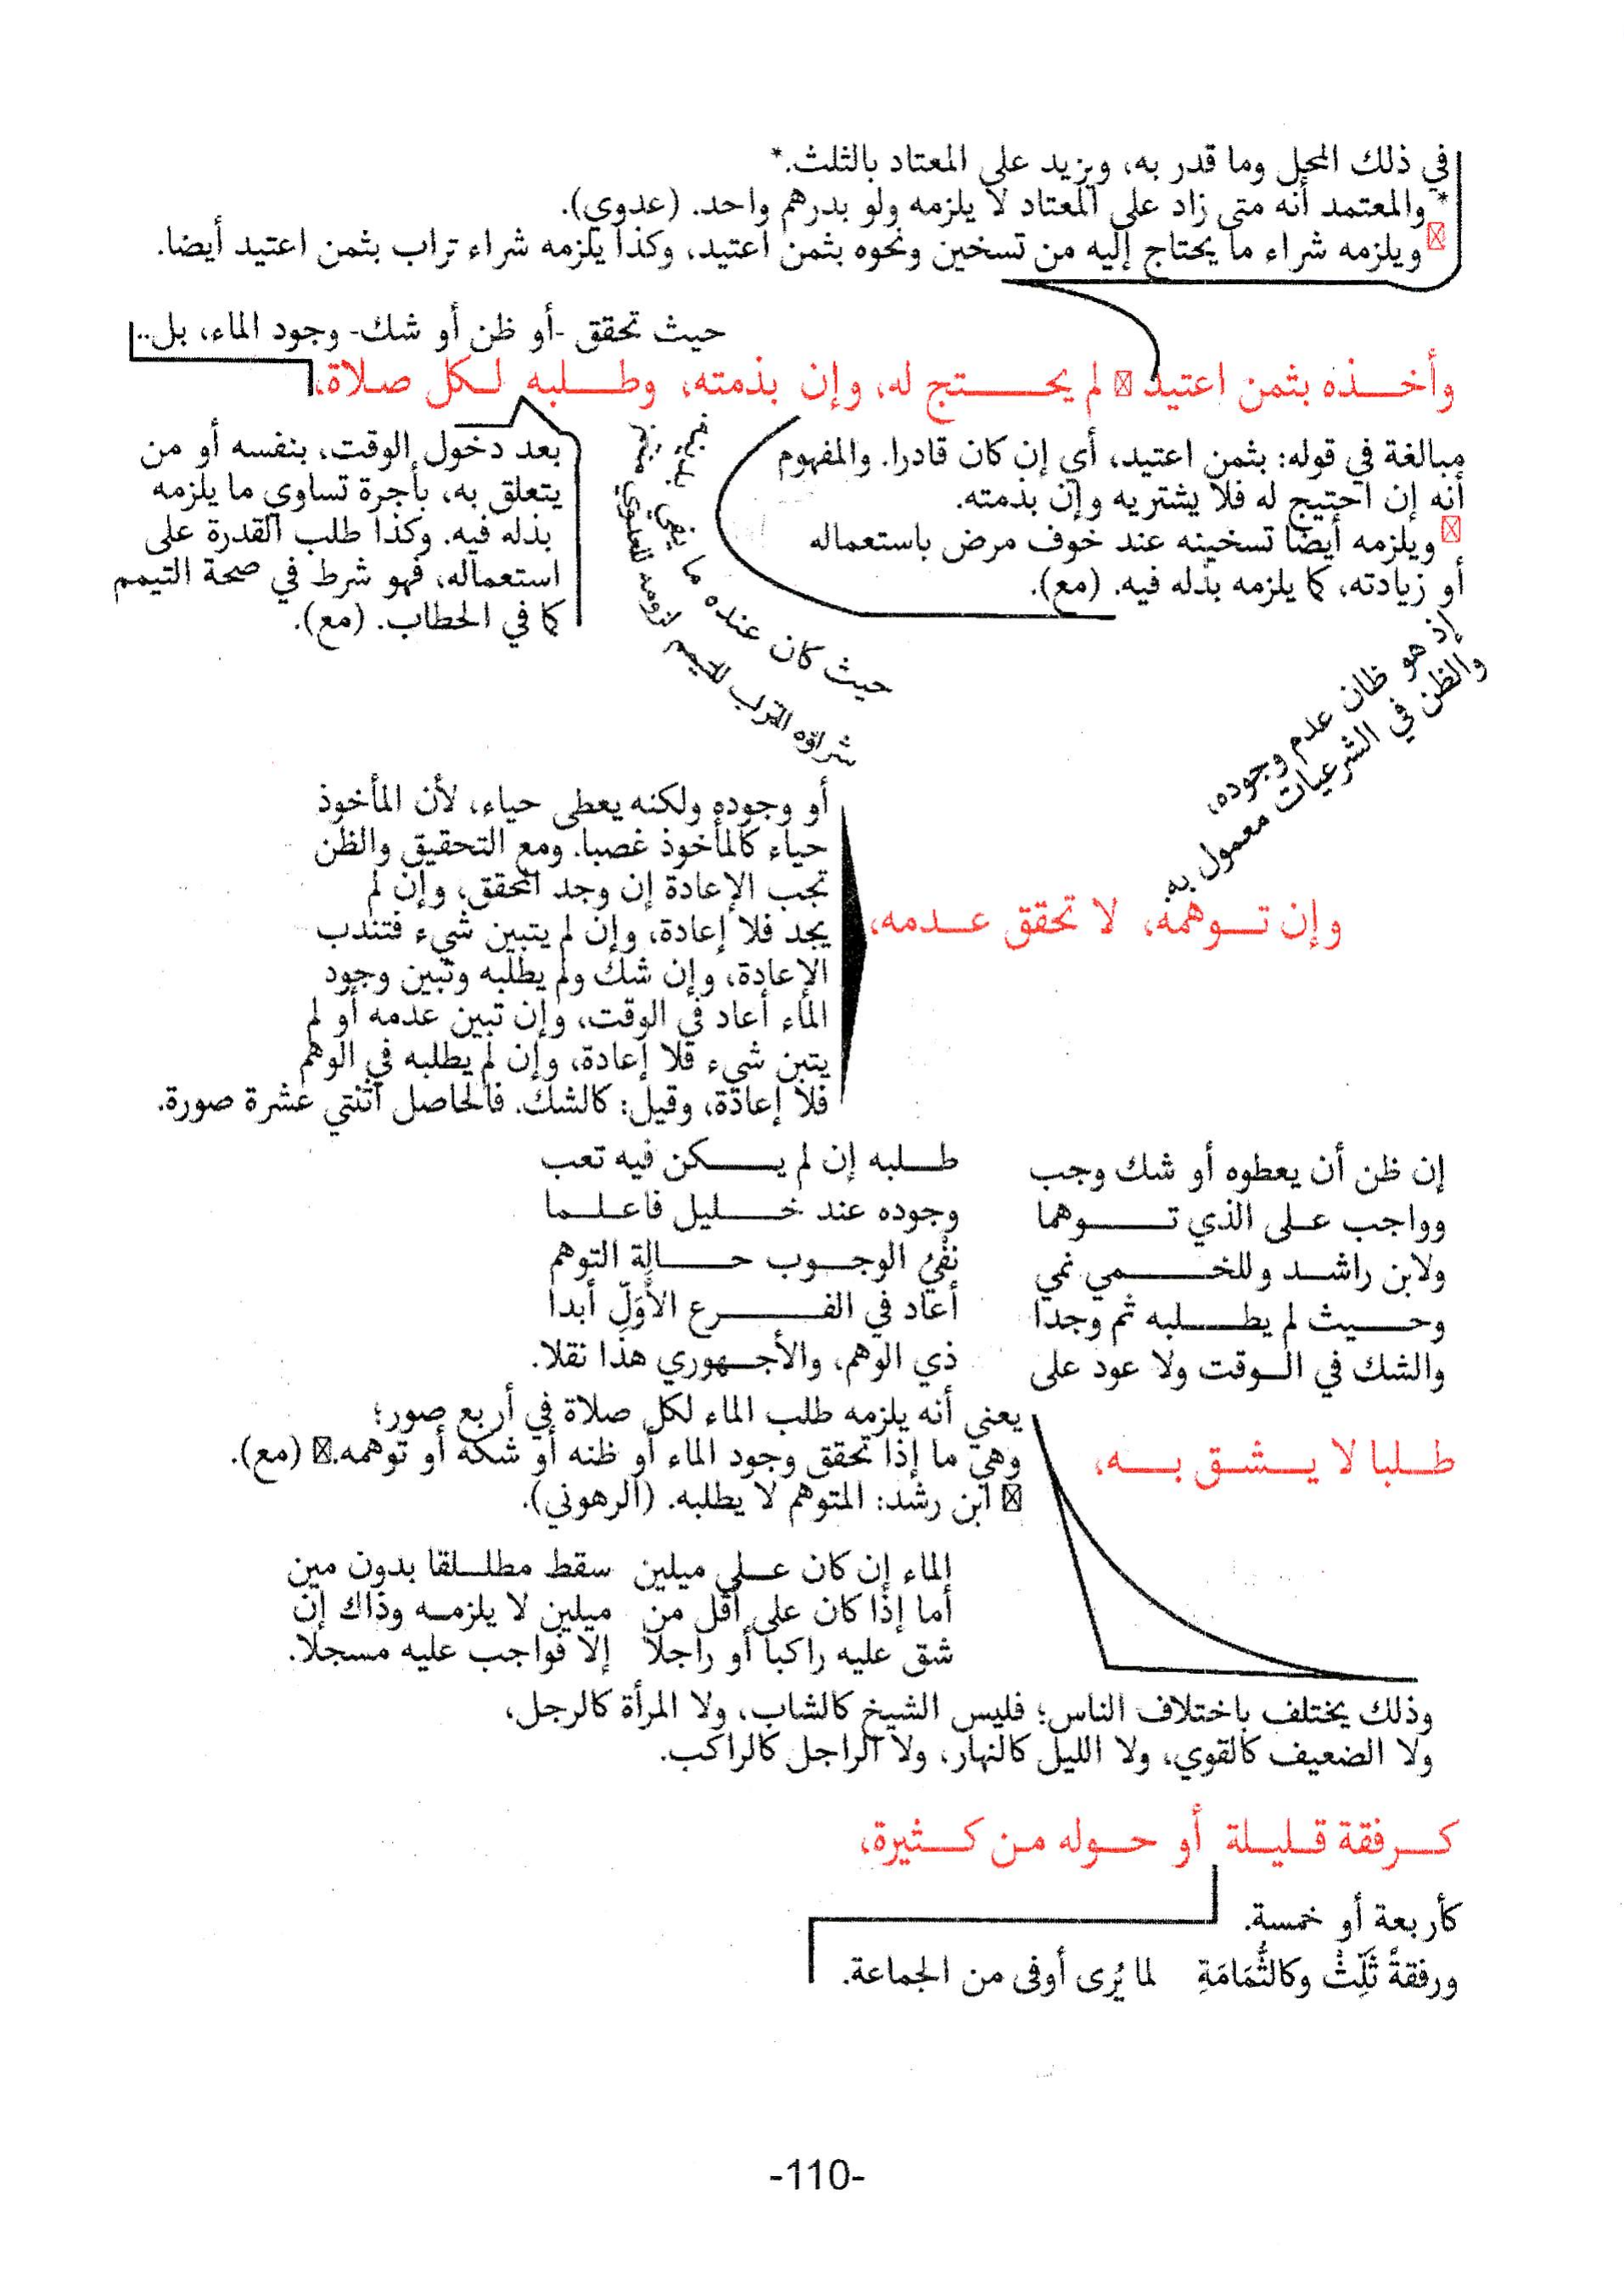 في ذلك المحل وما قدر به، ويزيد على المعتاد بالثلث.*
* والمعتمد أنه متى زاد على المعتاد لا يلزمه ولو بدرهم واحد. (عدوي).
ويلزمه شراء ما يحتاج إليه من تسخين ونحوه بثمن اعتيد، وكذا يلزمه شراء تراب بثمن اعتيد أيضا.
حيث تحقق -أو ظن أو شك- وجود الماء، بل..
وأخذه بثمن اعتيد لم يحتج له، وإن بذمته، وطلبه لكل صلاة،
مبالغة في قوله: بثمن اعتيد، أي إن كان قادرا. والمفهوم
أنه إن احتيج له فلا يشتريه وإن بذمته.
ويلزمه أيضا تسخينه عند خوف مرض باستعماله
أو زيادته، كما يلزمه بذله فيه. (مع).
حيث كان عنده ما يفي بدينه
شراؤه التراب للتيمم لزومه للعدوي
بعد دخول الوقت، بنفسه أو من
يتعلق به، بأجرة تساوي ما يلزمه
بذله فيه. وكذا طلب القدرة على
استعماله، فهو شرط في صحة التيمم
كما في الحطاب. (مع).
إذ هو ظان عدم وجوده،
والظن في الشرعيات معمول به
وإن توهمه، لا تحقق عدمه،
أو وجوده ولكنه يعطى حياء، لأن المأخوذ
حياء كالمأخوذ غصبا. ومع التحقيق والظن
تجب الإعادة إن وجد المحقق، وإن لم
يجد فلا إعادة، وإن لم يتبين شيء فتندب
الإعادة، وإن شك ولم يطلبه وتبين وجود
الماء أعاد في الوقت، وإن تبين عدمه أو لم
يتبن شيء فلا إعادة، وإن لم يطلبه في الوهم
فلا إعادة، وقيل: كالشك. فالحاصل اثنتي عشرة صورة.
إن ظن أن يعطوه أو شك وجب طلبه إن لم يكن فيه تعب
وواجب على الذي توهما وجوده عند خليل فاعلما
ولابن راشد وللخمي نمي نفْيُ الوجوب حالة التوهم
وحيث لم يطلبه ثم وجدا أعاد في الفرع الأَوَّلِ أبدا
والشك في الوقت ولا عود على ذي الوهم، والأجهوري هذا نقلا.
طلبا لا يشق به،
يعني أنه يلزمه طلب الماء لكل صلاة في أربع صور؛
وهي ما إذا تحقق وجود الماء أو ظنه أو شكه أو توهمه. (مع).
ابن رشد: المتوهم لا يطلبه. (الرهوني).
الماء إن كان على ميلين سقط مطلقا بدون مين
أما إذا كان على أقل من ميلين لا يلزمه وذاك إن
شق عليه راكبا أو راجلا إلا فواجب عليه مسجلا.
وذلك يختلف باختلاف الناس؛ فليس الشيخ كالشاب، ولا المرأة كالرجل،
ولا الضعيف كالقوي، ولا الليل كالنهار، ولا الراجل كالراكب.
كرفقة قليلة أو حوله من كثيرة،
كأربعة أو خمسة.
ورفقةً ثَلِّثْ وكالثُّمَامَةِ لما يُرى أوفى من الجماعة.
-110-